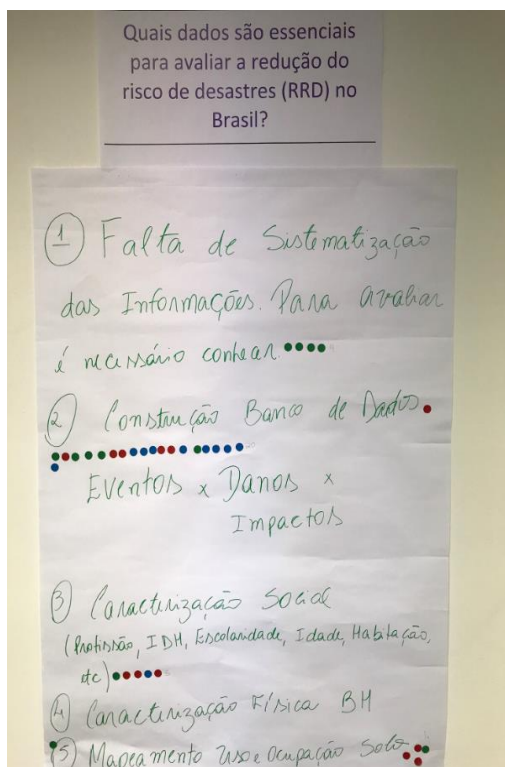 Quais dados são essenciais
para avaliar a redução do
risco de desastres (RRD) no
Brasil?
1 Falta de Sistematização
das Informações. Para avaliar
é necessário conhecer.
2 Construção Banco de Dados.
Eventos x Danos x
Impactos
3 Caracterização Social
(Profissão, IDH, Escolaridade, Idade, Habitação,
etc)
4 Caracterização Física BH
5 Mapeamento Uso e Ocupação Solo